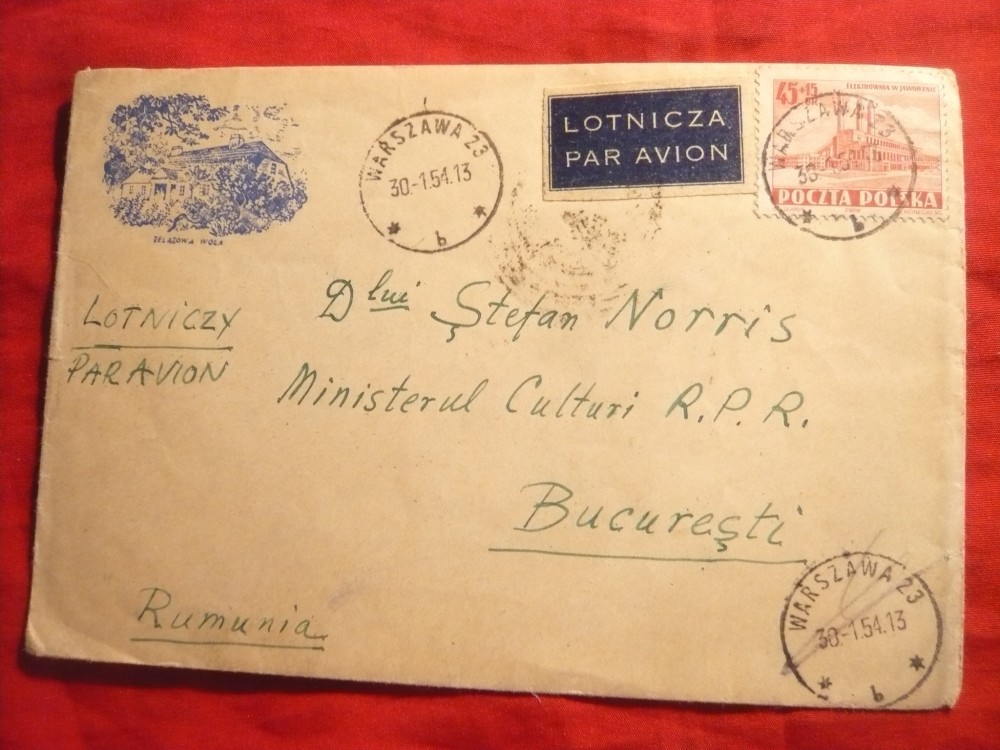 ŻELAZOWA WOLA
WARSZAWA 23
30.-1.54.13
b
LOTNICZA
PAR AVION
45+15
ELEKTROWNIA W JAWORZNIE
POCZTA POLSKA
WARSZAWA 23
b
LOTNICZY
PAR AVION
Dlui Ștefan Norris
Ministerul Culturi R.P.R.
București
Rumunia
WARSZAWA 23
30.-1.54.13
b